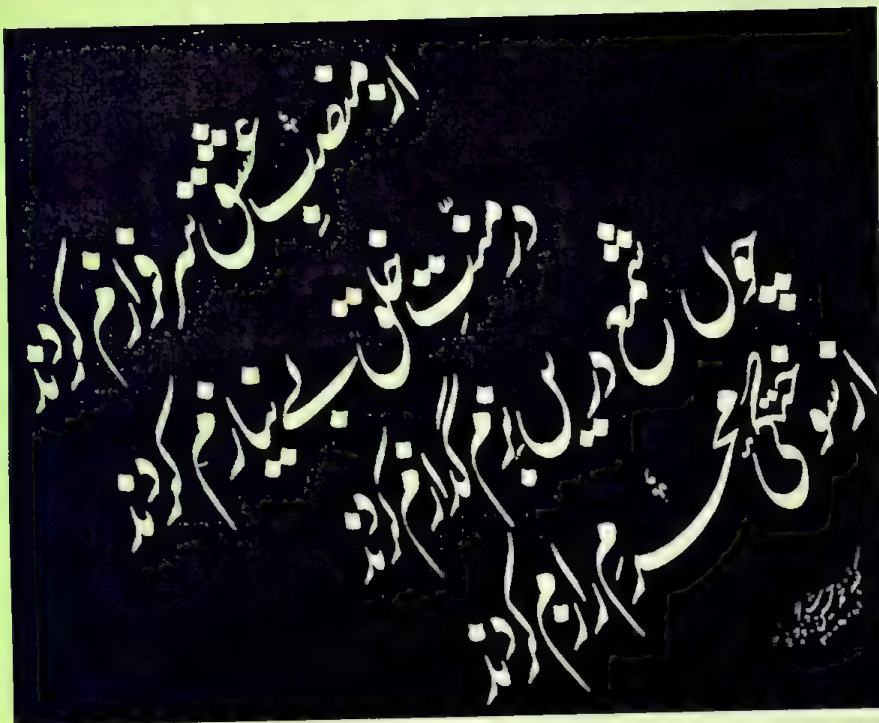 از منصبِ عشق سرفرازم کردند
در منّتِ خلق بی نیازم کردند
چوں شمع دریں بزم گدازم کردند
از سوختگی محرمِ رازم کردند